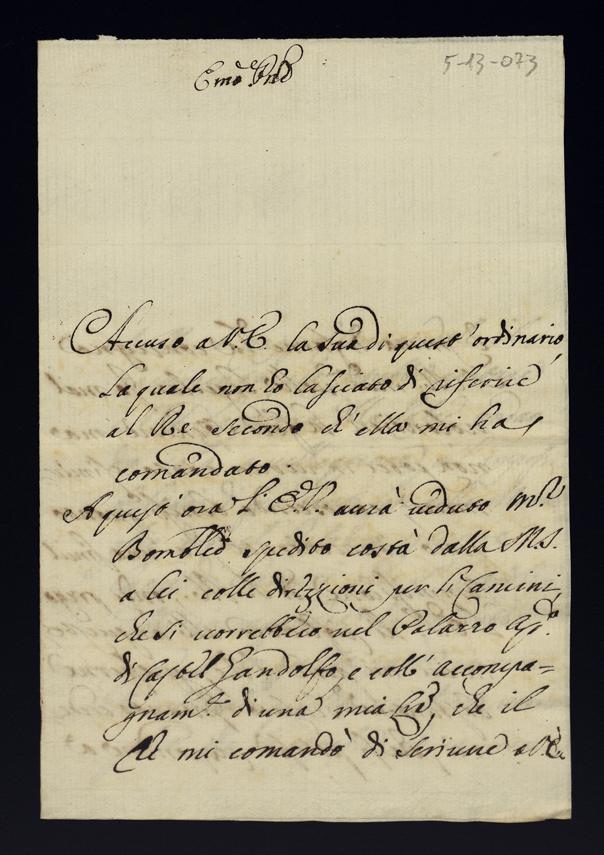 5-13-073
Emo Pne
Accuso a V.E. la sua di quest' ordinario,
la quale non ho lasciato di riferire
al Re secondo ch' ella mi ha
comandato.
A quest' ora l' E.V. aurà veduto Mr.
spedito costà dalla M.S.
a lei colle dirizzioni per li Camini,
che si vorrebbero nel Palazzo Apo.
di Castel Gandolfo, e coll' accompa=
gnam.to di una mia lra, che il
Re mi comandò di scrivere a V.E.